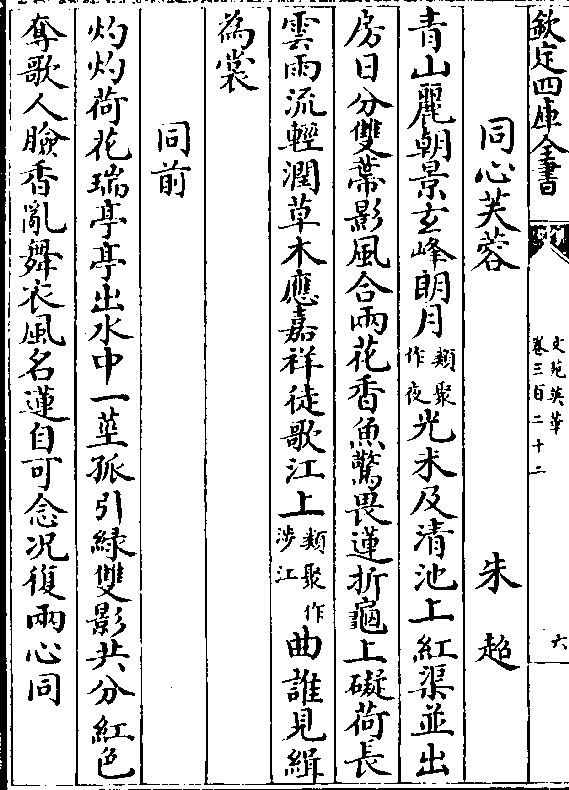 欽定四庫全書
文苑英華
卷三百二十二
六
同心芙蓉 朱超
青山麗朝景玄峰朗月類聚作夜光未及清池上紅渠並出
房日分雙蔕影風合兩花香魚驚畏蓮折龜上礙荷長
雲雨流輕潤草木應嘉祥徒歌江上類聚作涉江曲誰見緝
為裳
同前
灼灼荷花瑞亭亭出水中一莖孤引緑雙影共分紅色
奪歌人臉香亂舞衣風名蓮自可念况復兩心同